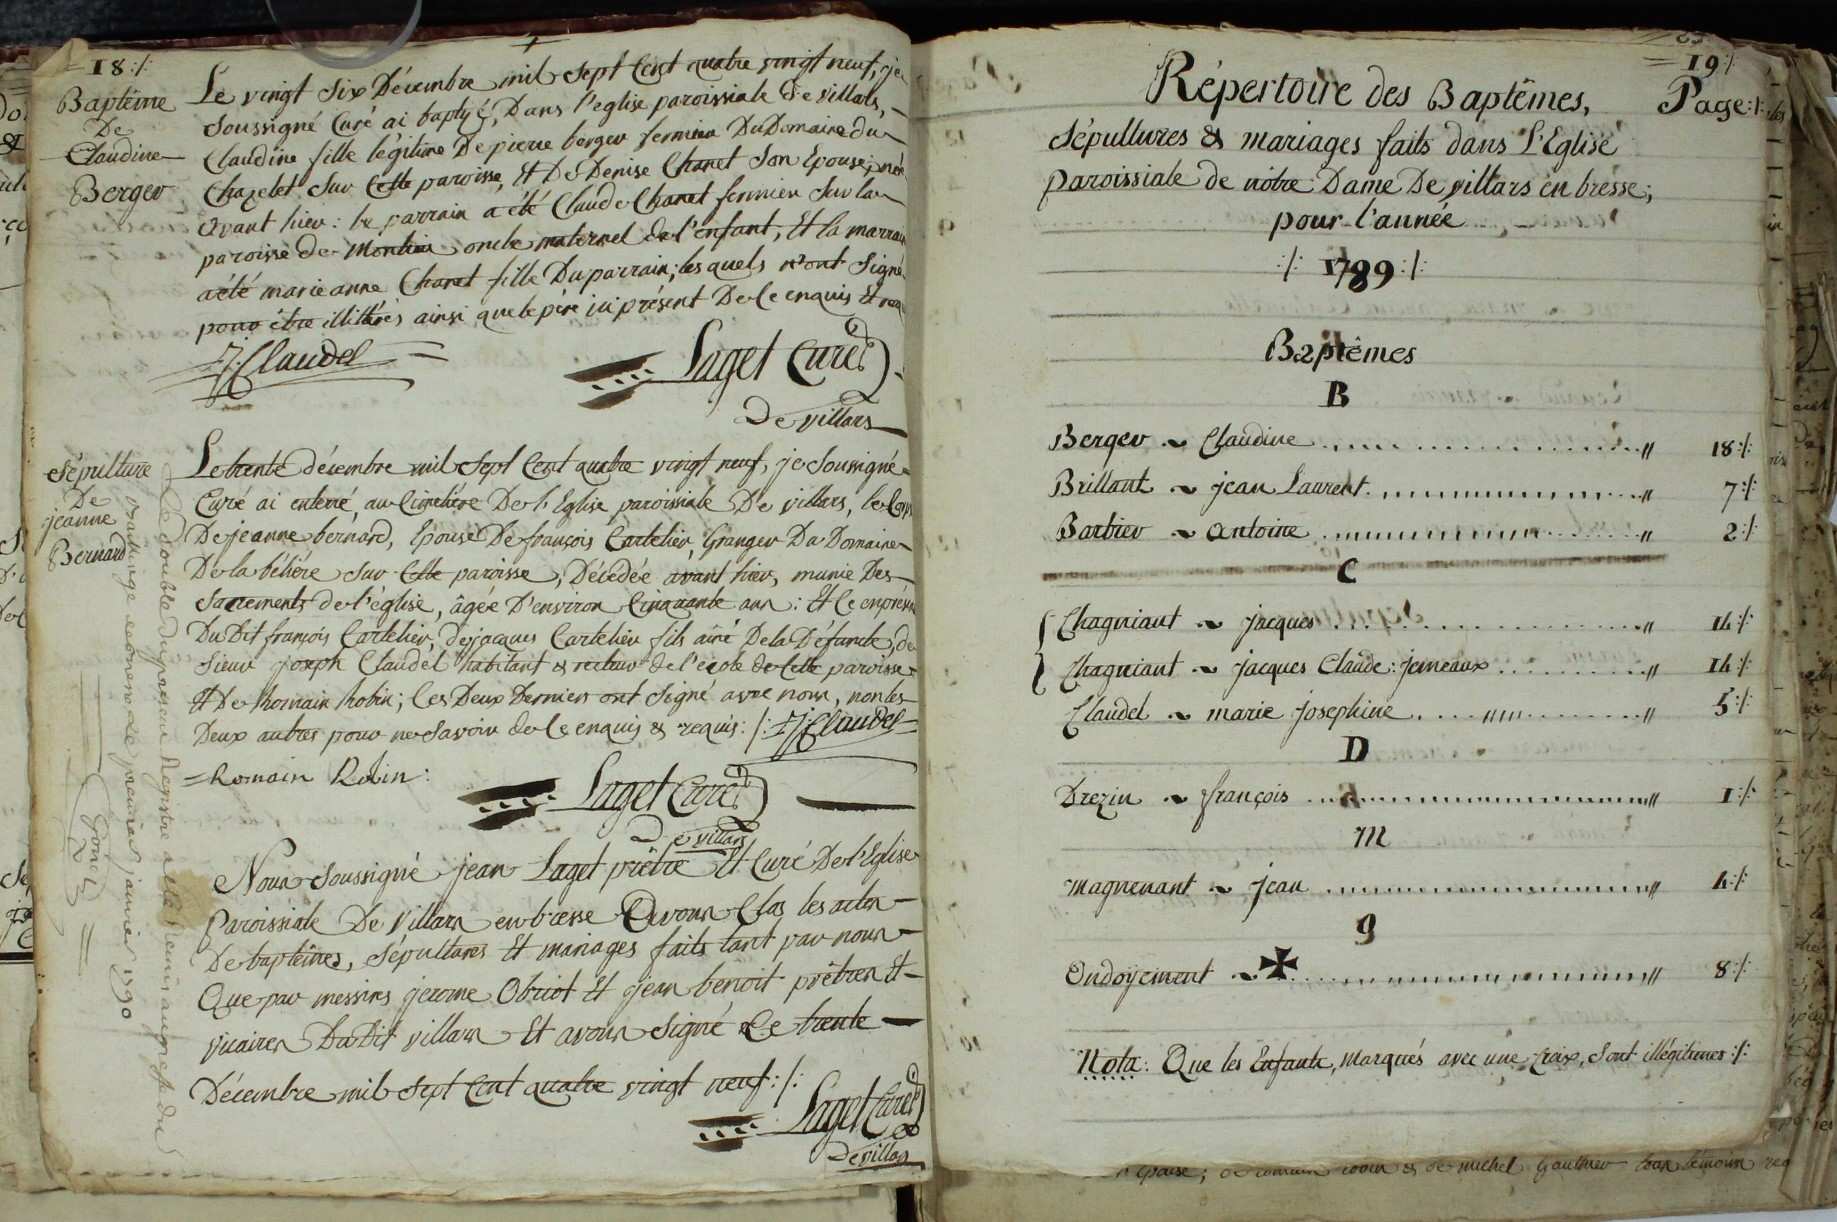 18 :/:
Baptême
De
Claudine
Berger
Le vingt six Décembre mil sept Cent quatre vingt neuf, je
soussigné Curé ai baptizé, Dans l'eglise paroissiale De villars,
Claudine fille légitime De pierre berger fermier Du Domaine du
Chazelet sur Cette paroisse, Et De Denise Chanet son Epouse; née
avant hier : le parrain a été Claude Chanet fermier sur la
paroisse de oncle maternel de l'enfant, Et la marraine
a été marie anne Chanet fille Du parrain; les quels n'ont signé
pour être illittérés ainsi que le père ici présent De Ce enquis Et requis
J. Claudel
Laget Curé
De villars
Sépulture
De
jeanne
Bernard
Le trente décembre mil sept Cent quatre vingt neuf, je soussigné
Curé ai enterré, au Cimetière De l'Eglise paroissiale De villars, le Corps
De jeanne bernard, Epouse De françois Cartelier, Granger Du Domaine
De la béliére sur Cette paroisse, Décédée avant hier, munie Des
Sacrements de l'église, âgée D'environ Cinquante ans : Et Ce en présence
Du Dit françois Cartelier, De jacques Cartelier fils aîné De la Défunte, de
Sieur joseph Claudel habitant & recteur de l'ecole de Cette paroisse
Et De Romain Robin; Ces Deux Derniers ont signé avec nous, non les
Deux autres pour ne savoir de Ce enquis & requis : /: J. j. Claudel
= Romain Robin :
Laget Curé
De villars
Nous soussigné jean Laget prêtre Et Curé De l'Eglise
Paroissiale De Villars en bresse Avons Clos les actes
De baptêmes, sépultures Et mariages faits tant par nous
Que par messires jerome Obriot Et jean benoit prêtres Et
vicaires Du Dit villars Et avons signé Ce trente
Décembre mil sept Cent quatre vingt neuf :/:
Laget Curé
De villars
le double du présent Registre a été remis au greffe du
bailliage de Bourg le premier janvier 1790
= 19 :/:
Répertoire des Baptêmes, Page :/:
Sépultures & mariages faits dans L'Eglise
paroissiale de nôtre Dame De villars en bresse;
pour l'année
:/: 1789 :/:
Baptêmes
B
Berger ~ Claudine 18 :/:
Brillant ~ jean Laurent 7 :/:
Barbier ~ antoine 2 :/:
C
Chagniant ~ jacques 14 :/:
Chagniant ~ jacques Claude : jemeaux 14 :/:
Claudel ~ marie josephine 5 :/:
D
Drezin ~ françois 1 :/:
m
magnenant ~ jean 4 :/:
9
Ondoÿement ~ ✠ 8 :/:
Nota : Que les Enfants, marqués avec une Croix, sont illégitimes :/: